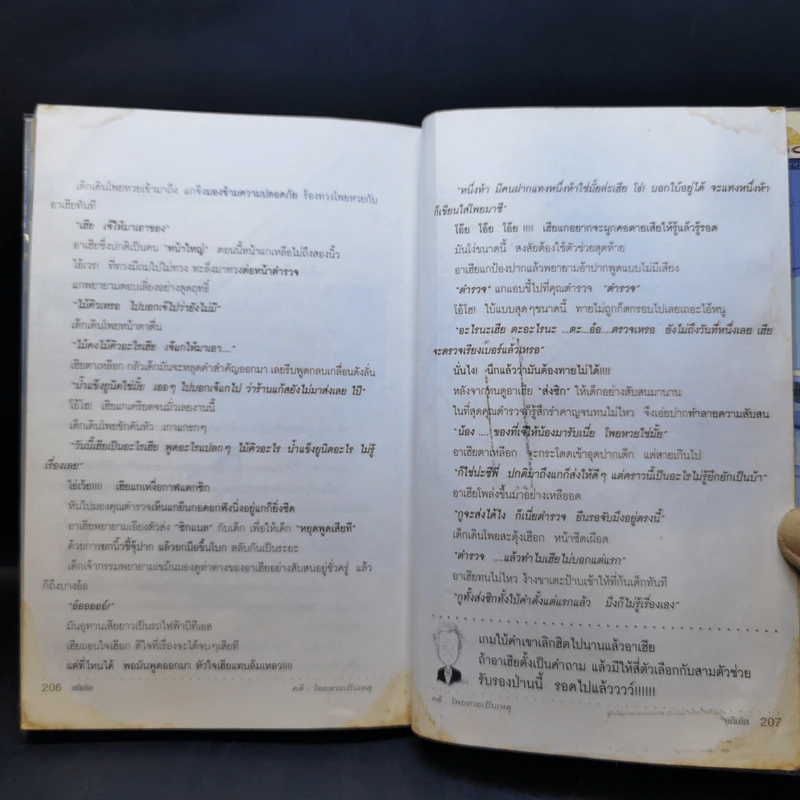 เด็กเดินโพยหวยเข้ามาถึง แกจึงมองข้ามความปลอดภัย ร้องทวงโพยหวยกับ
อาเฮียทันที
"เฮีย เจ๊ให้มาเอาของ"
อาเฮียซึ่งปกติเป็นคน "หน้าใหญ่" ตอนนี้หน้าแกเหลือไม่ถึงสองนิ้ว
โอ้เวร! ที่ทวงมีถมไปไม่ทวง ทะลึ่งมาทวงต่อหน้าตำรวจ
แกพยายามตอบเลี่ยงอย่างสุดฤทธิ์
"ไม้คิวเหรอ ไปบอกเจ๊ไปว่ายังไม่มี"
เด็กเดินโพยหน้าตาตื่น
"ไม้คงไม้คิวอะไรเฮีย เจ๊แกให้มาเอา...."
เฮียตาเหลือก กลัวเด็กมันจะหลุดคำสำคัญออกมา เลยรีบพูดกลบเกลื่อนดังลั่น
"น้ำแข็งยูนิตใช่มั้ย เออๆ ไปบอกเจ๊แกไป ว่าร้านแก้สยังไม่มาส่งเลย ไป๊"
โอ้โฮ! เฮียแกเครียดจนมั่วเลยงานนี้
เด็กเดินโพยชักคันหัว เกาแกรกๆ
"วันนี้เฮียเป็นอะไรเฮีย พูดอะไรแปลกๆ ไม้คิวอะไร น้ำแข็งยูนิตอะไร ไม่รู้
เรื่องเลย"
โธ่เว้ย!!!! เฮียแกเหงื่อกาฬแตกซิก
หันไปมองคุณตำรวจเห็นแกยืนกอดอกฟังนิ่งอยู่แกก็ยิ่งซีด
อาเฮียพยายามเอียงตัวส่ง "ซิกแนล" กับเด็ก เพื่อให้เด็ก "หยุดพูดเสียที"
ด้วยการยกนิ้วชี้จุ๊ปาก แล้วยกมือขึ้นโบก สลับกันเป็นระยะ
เด็กเจ้ากรรมพยายามเขม้นมองดูท่าทางของอาเฮียอย่างสับสนอยู่ชั่วครู่ แล้ว
ก็ถึงบางอ้อ
"อ๋ออออออ้!"
มันอุทานเสียงยาวเป็นรถไฟฟ้าบีทีเอส
เฮียถอนใจเฮือก ดีใจที่เรื่องจะได้จบๆเสียที
แต่ที่ไหนได้ พอมันพูดออกมา หัวใจเฮียแทบล้มเหลว!!!!
206
คดี : โพยหวยเป็นเหตุ
"หนึ่งห้า มีคนฝากแทงหนึ่งห้าใช่มั้ยล่ะเฮีย โธ่! บอกใบ้อยู่ได้ จะแทงหนึ่งห้า
ก็เขียนใส่โพยมาซี"
โอ๊ย โอ๊ย โอ๊ย !!!! เฮียแกอยากจะผูกคอตายเสียให้รู้แล้วรู้รอด
มันโง่ขนาดนี้ สงสัยต้องใช้ตัวช่วยสุดท้าย
อาเฮียแกป้องปากแล้วพยายามอ้าปากพูดแบบไม่มีเสียง
"ตำรวจ" แกแอบชี้ไปที่คุณตำรวจ "ตำรวจ"
โอ้โฮ! ใบ้แบบสุดๆขนาดนี้ ทายไม่ถูกก็ตกรอบไปเลยเถอะไอ้หนู
"อะไรนะเฮีย ตะอะไรนะ ...ตะ...อ๋อ....ตรวจเหรอ ยังไม่ถึงวันที่หนึ่งเลย เฮีย
จะตรวจเรียงเบอร์แล้วเหรอ"
นั่นไง! นึกแล้วว่ามันต้องทายไม่ได้!!!!
หลังจากทนดูอาเฮีย "ส่งซิก" ให้เด็กอย่างสับสนมานาน
ในที่สุดคุณตำรวจก็รู้สึกรำคาญจนทนไม่ไหว จึงเอ่ยปากทำลายความสับสน
"น้อง .... ของที่เจ๊ให้น้องมารับเนี่ย โพยหวยใช่มั้ย"
อาเฮียตาเหลือก จะกระโดดเข้าอุดปากเด็ก แต่สายเกินไป
"ก็ใช่น่ะซีพี่ ปกติมาถึงแกก็ส่งให้ดีๆ แต่คราวนี้เป็นอะไรไม่รู้ยึกยักเป็นบ้า"
อาเฮียโพล่งขึ้นมาอย่างเหลืออด
"กูจะส่งได้ไง ก็เนี่ยตำรวจ ยืนรอจับมึงอยู่ตรงนี้"
เด็กเดินโพยสะดุ้งเฮือก หน้าซีดเผือด
"ตำรวจ ....แล้วทำไมเฮียไม่บอกแต่แรก"
อาเฮียทนไม่ไหว ง้างขาเตะป้าบเข้าให้ที่ก้นเด็กทันที
"กูทั้งส่งซิกทั้งใบ้คำตั้งแต่แรกแล้ว มึงก็ไม่รู้เรื่องเอง"
เกมใบ้คำเขาเลิกฮิตไปนานแล้วอาเฮีย
ถ้าอาเฮียตั้งเป็นคำถาม แล้วมีให้สี่ตัวเลือกกับสามตัวช่วย
รับรองป่านนี้ รอดไปแล้วววว์!!!!!!
คดี : โพยหวยเป็นเหตุ
207